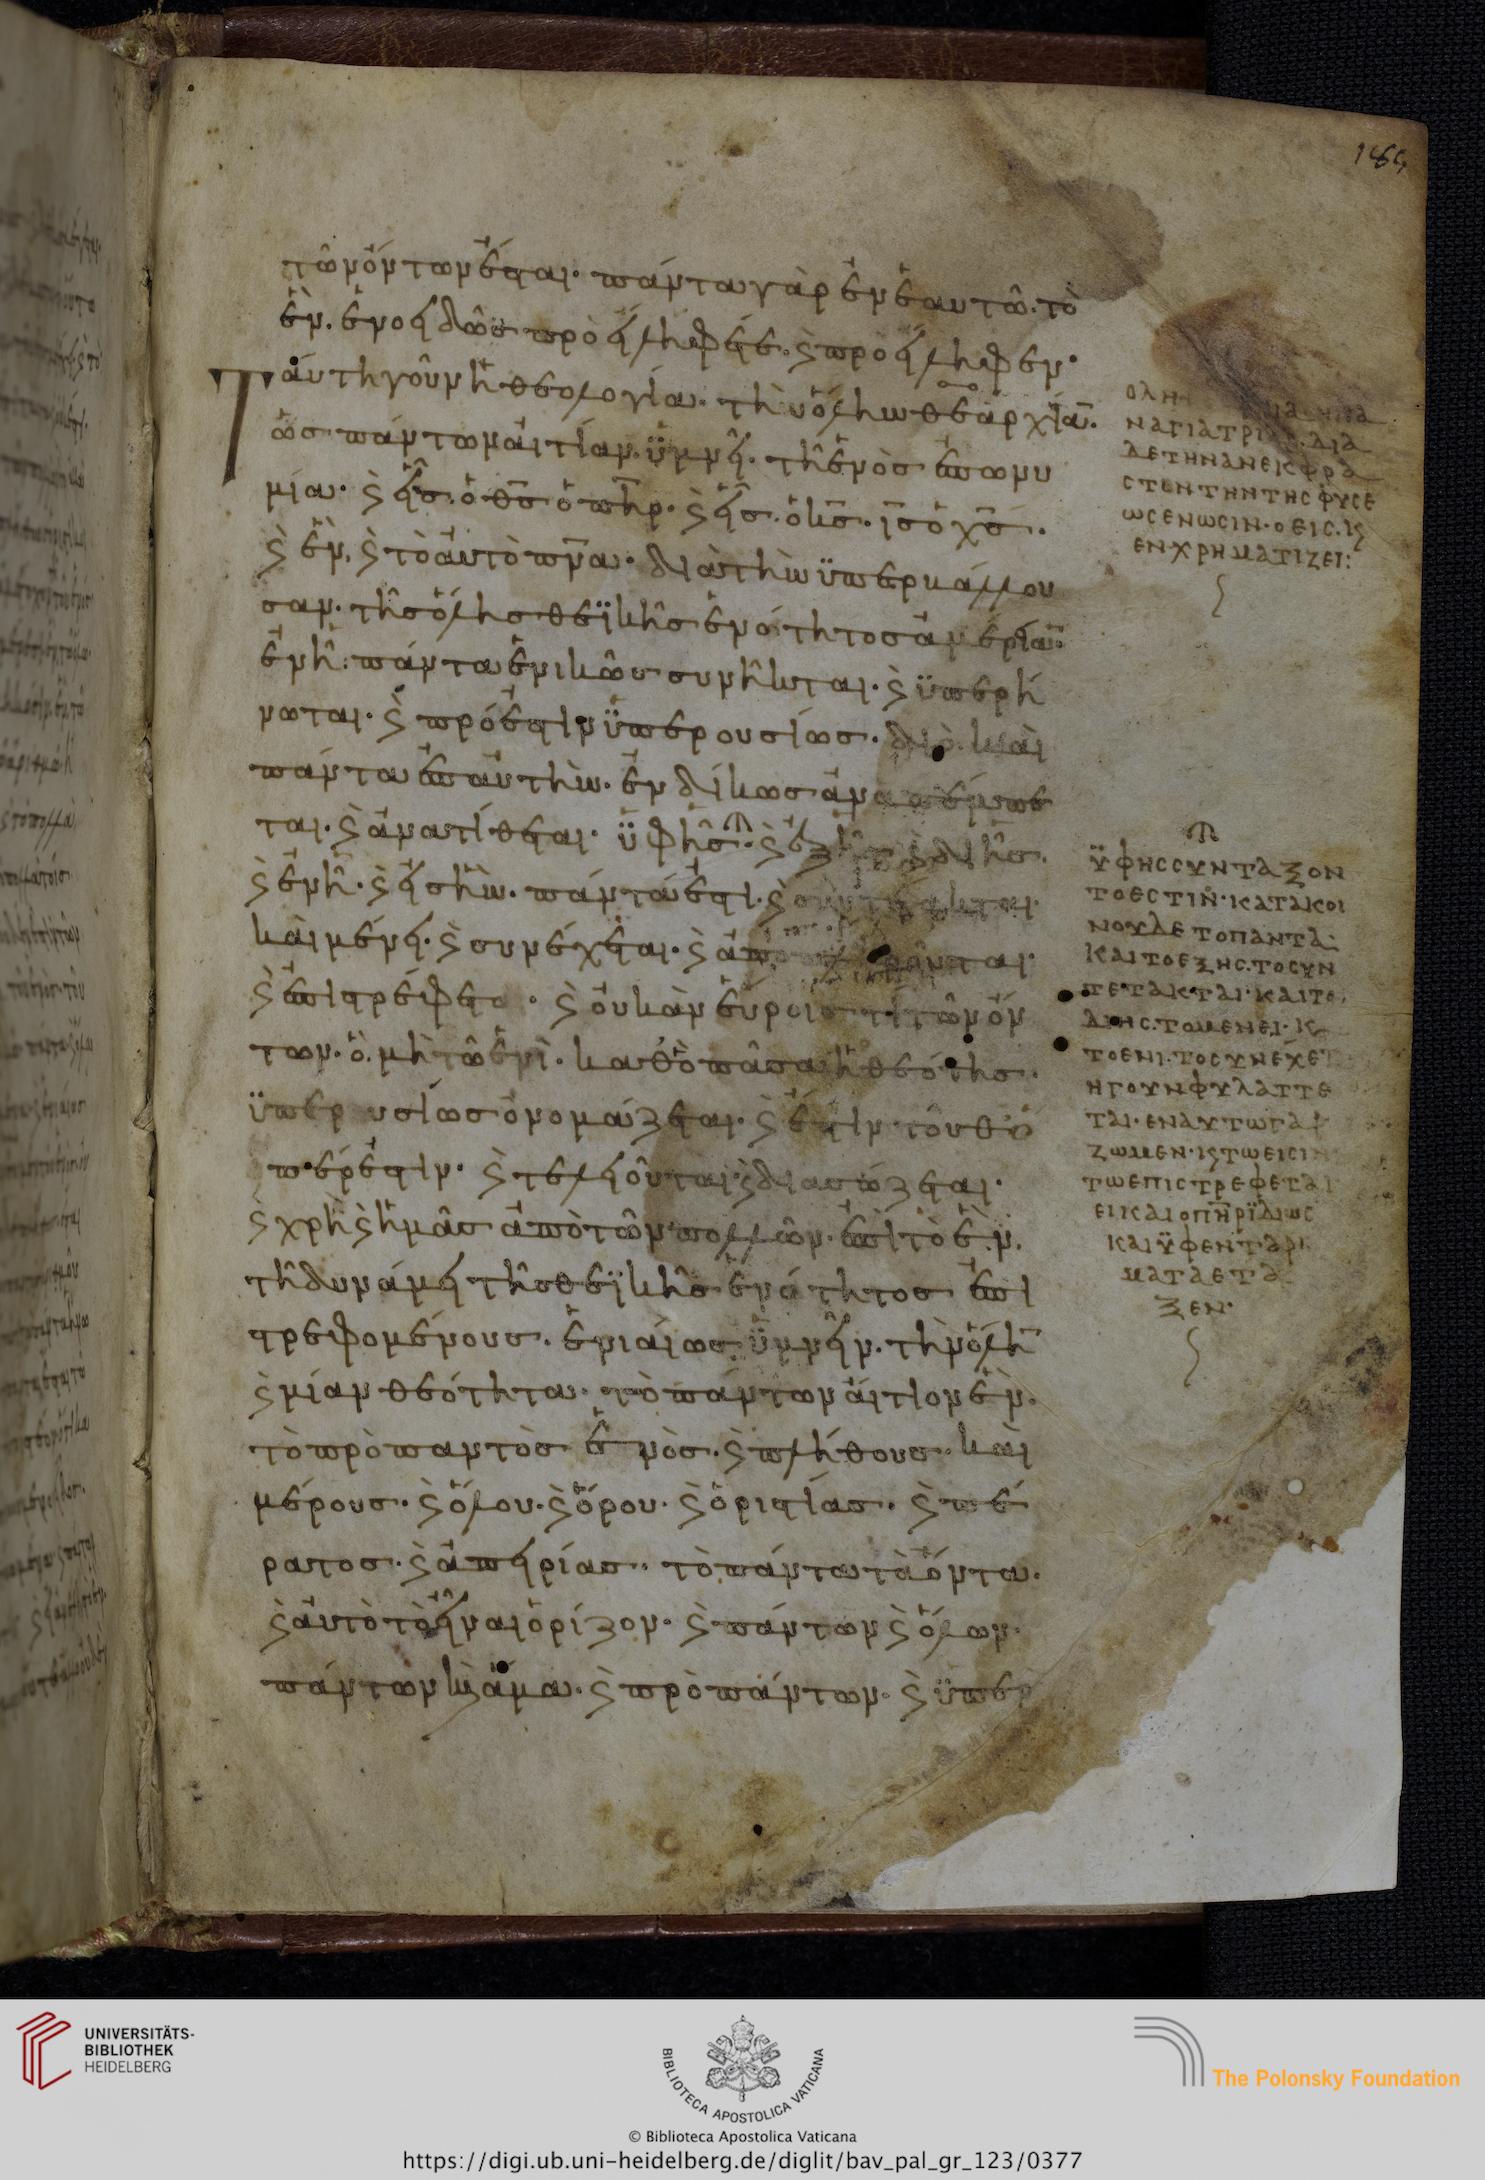 186
τῶν ὄντων ἔσται· πάντα γὰρ ἐν ἑαυτῶ· τὸ
ἓν. ἑνοειδῶς προείληφέ τε. ϗ προείληφεν·
Ταύτη γοῦν ἡ θεολογία· τὴν ὅλην θεαρχίαν.
ὡς πάντων αἰτίαν. ὑμνεῖ· τῆ ἑνὸς ἐπωνυ
μία· ϗ εἷς. ὁ θ̅ς̅ ὁ π̅η̅ρ̅· ϗ εἷς. ὁ κ̅ς̅· ι̅ς̅ ὁ χ̅ς̅·
ϗ ἓν. ϗ τὸ αὐτὸ π̅ν̅α̅· διὰ τὴν ὑπερβάλλου
σαν. τῆς ὅλης θεϊκῆς ἑνότητος ἀμερίαν·
ἐν ἧ· πάντα ἑνικῶς συνῆκται. ϗ ὑπερή
νωται· ϗ πρόεστιν ὑπερουσίως· διὸ καὶ
πάντα ἐπ αὐτὴν. ἐνδίκως ἀναπέμπε
ται· ϗ ἀνατίθεται· ὑφ ἧς· ϗ ἐξ ἧς ϗ δι ἧς.
ϗ ἐν ἧ· ϗ εἰς ἣν. πάντα ἐστι· ϗ συντέτακται·
καὶ μένει· ϗ συνέχεται· ϗ ἀποπληροῦνται·
ϗ ἐπιστρέφεται· ϗ οὐκ ἂν εὕροις τὶ τῶν ὄν
των· ὃ μὴ τῶ ἑνὶ· καθ ὃ πᾶσα ἡ θεότης·
ὑπερουσίως ὀνομάζεται· ϗ ἔστιν τοῦθ ὅ
περ ἐστὶν· ϗ τελειοῦται ϗ διασώζεται·
ϗ χρὴ ϗ ἡμᾶς ἀπὸ τῶν πολλῶν· ἐπὶ τὸ ἓν.
τῆ δυνάμει τῆς θεϊκῆς ἑνότητος ἐπι
στρεφομένους. ἑνιαίως ὑμνεῖν· τὴν ὅλην
ϗ μίαν θεότητα· τὸ πάντων αἴτιον ἓν.
τὸ πρὸ παντὸς ἑνὸς· ϗ πλήθους· καὶ
μέρους· ϗ ὅλου· ϗ ὅρου· ϗ ὁριστίας· ϗ πέ
ρατος· ϗ ἀπειρίας· τὸ πάντα τὰ ὄντα·
ϗ αὐτὸ τὸ εἶναι ὁρίζον· ϗ πάντων ϗ ὅλων·
πάντων ϗ ἅμα· ϗ πρὸ πάντων· ϗ ὑπερ
ΝΑΓΙΑΤΡΙ ΔΙΑ
ΔΕΤΗΝΑΝΕΚΦΡΑ
ΣΤΟΝΤΗΝΤΗΣΦΥΣΕ
ΩΣΕΝΩΣΙΝ·ΟΕΙΣ.ϗ
ΕΝΧΡΗΜΑΤΙΖΕΙ:
ΫΦΗΣΣΥΝΤΑΞΟΝ
ΤΟΕΣΤΙΝ·ΚΑΤΑΚΟΙ
ΝΟΥΔΕΤΟΠΑΝΤΑ
ΚΑΙΤΟΕΞΗΣ.ΤΟΣΥΝ
ΤΕΤΑΚΤΑΙ·ΚΑΙΤΟ
ΔΙΗΣ.ΤΟΜΕΝΕΙ·ϗ
ΤΟΕΝΙ.ΤΟΣΥΝΕΧΕΤ
ΗΓΟΥΝΦΥΛΑΤΤΕ
ΤΑΙ·ΕΝΑΥΤΩΓΑΡ
ΖΩΜΕΝ·ϗΤΩΕΙΣΙΝ
ΤΩΕΠΙΣΤΡΕΦΕΤΑΙ
ΕΙΚΑΙΟΠΗΡΪΔΙΩΣ
ΚΑΙΫΦΕΝΤ
ΜΑΤΑΕΤΑ
ΞΕΝ·
UNIVERSITÄTS-
BIBLIOTHEK
HEIDELBERG
BIBLIOTECA APOSTOLICA VATICANA
The Polonsky Foundation
© Biblioteca Apostolica Vaticana
https://digi.ub.uni-heidelberg.de/diglit/bav_pal_gr_123/0377